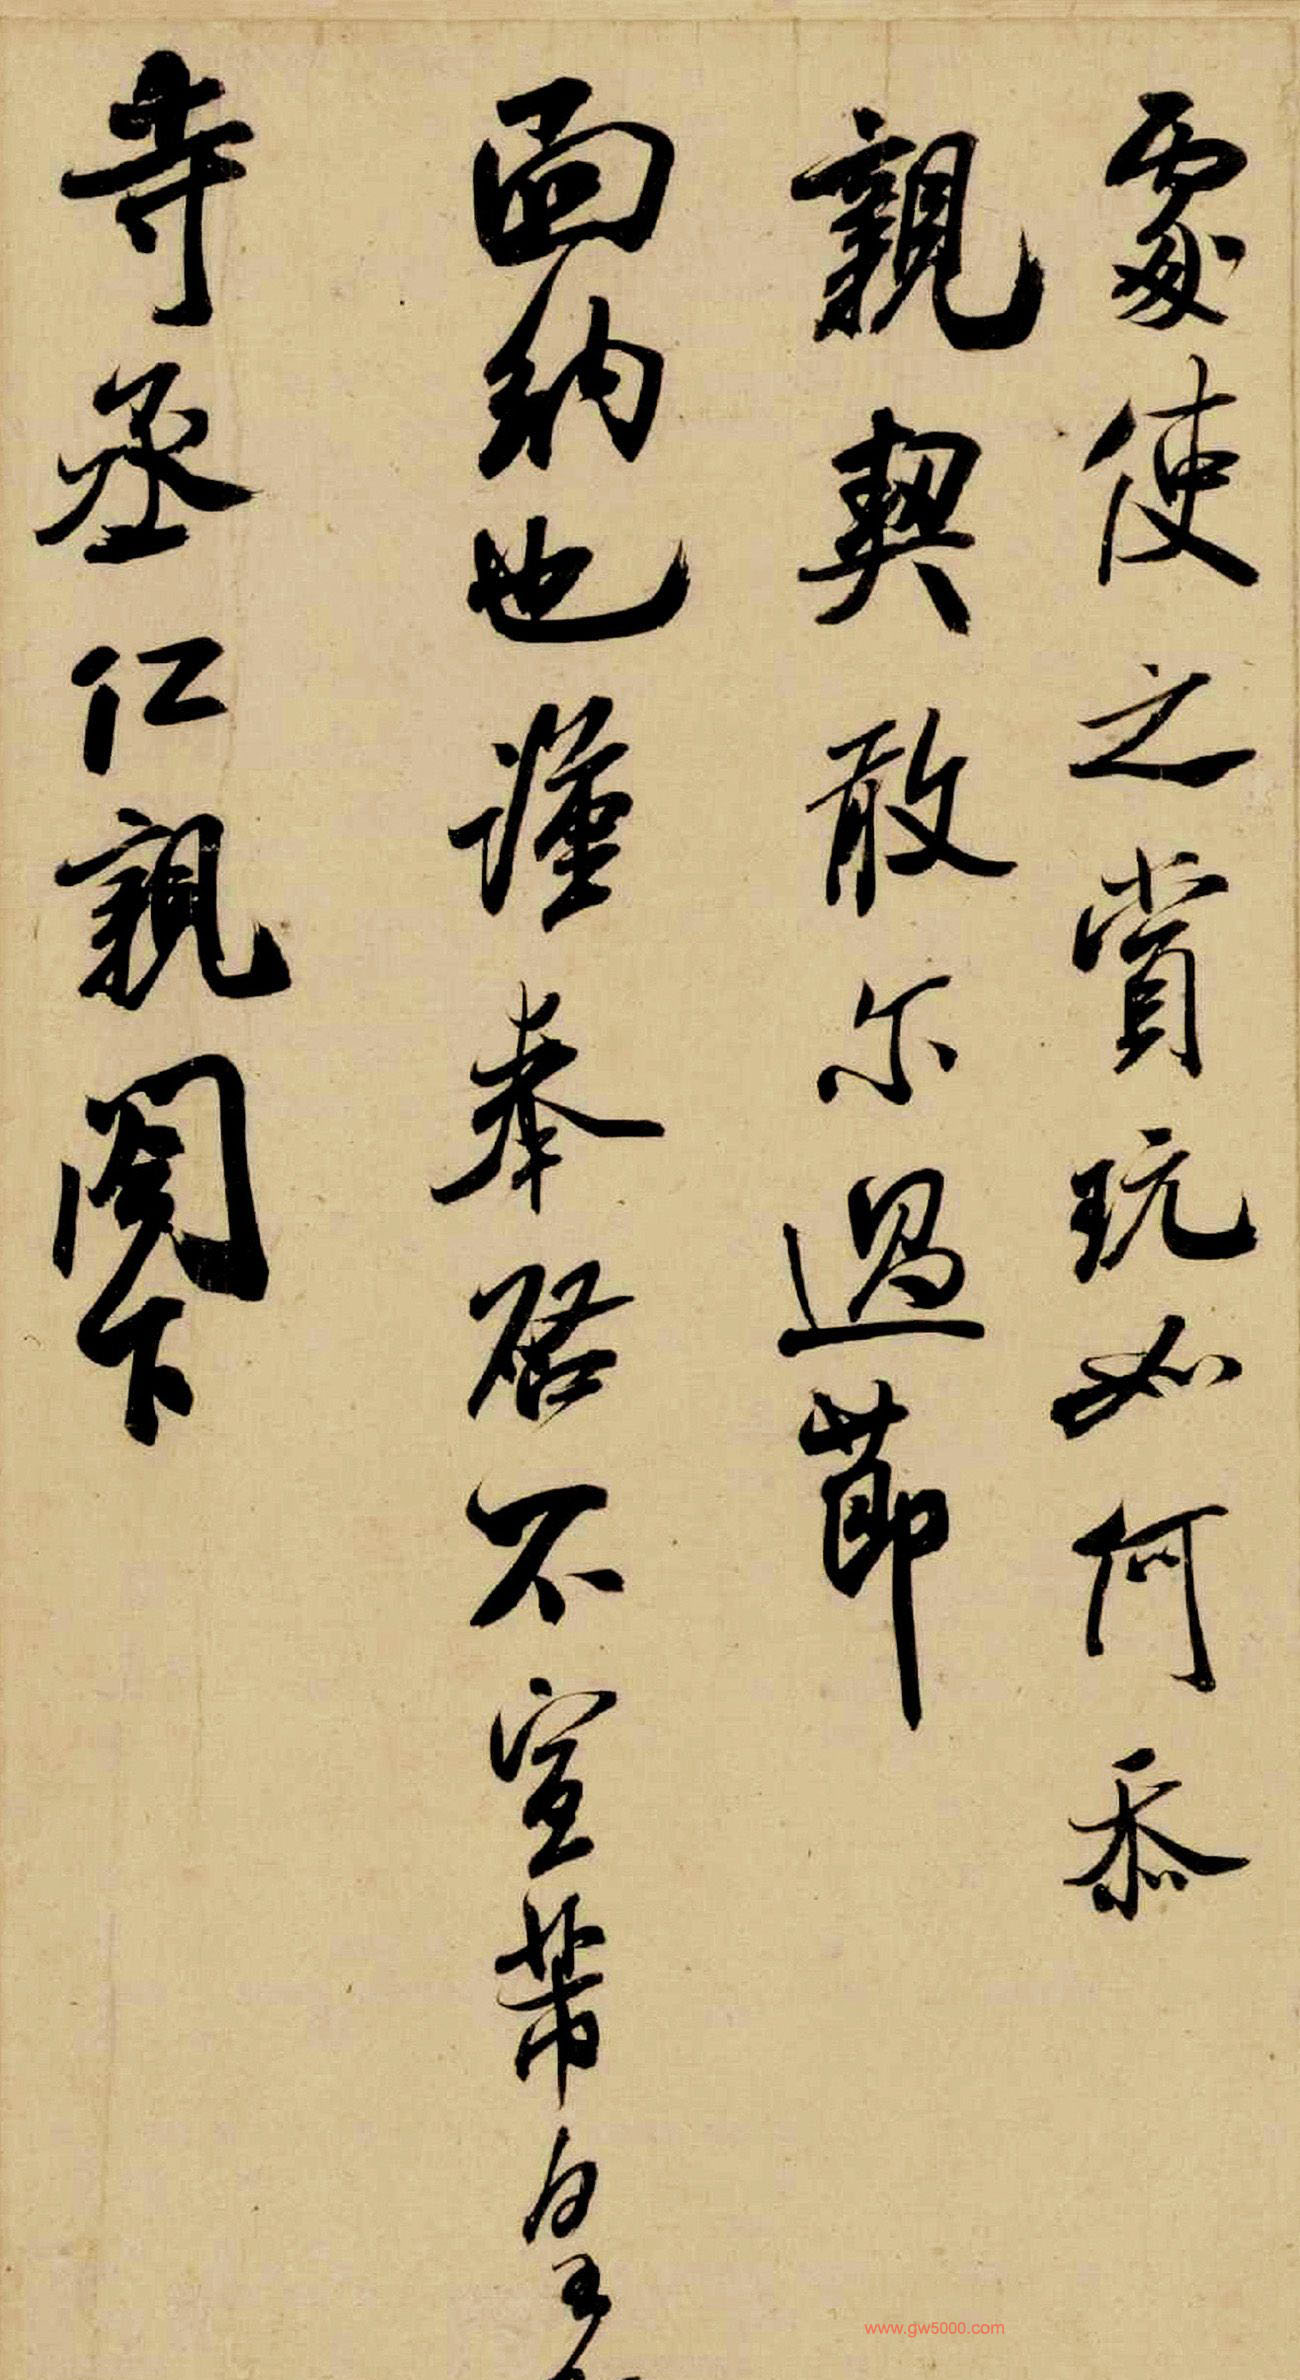 處使之賞玩如何忝
親契敢尔過節
面納也謹奉啓不宣芾皇
寺丞仁親閤下
www.gw5000.com